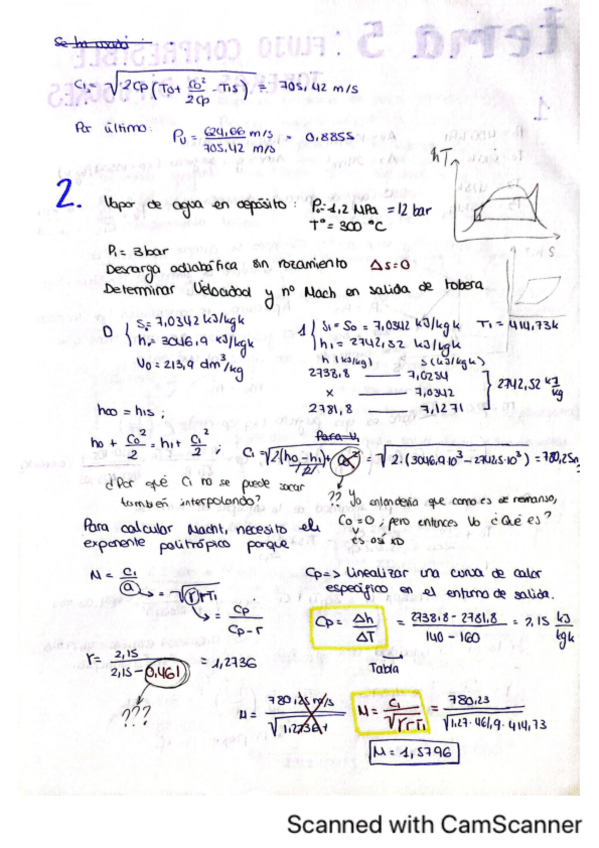 Se ha usado
C₁ = √2Cp(T₀ + C₀²/2Cp - T₁s) = 705,42 m/s
Por último: ρv = 624,66 m/s / 705,42 m/s = 0,8855
hT
2. Vapor de agua en depósito: P₀=1,2 MPa = 12 bar
T° = 300 °C
S
P₁ = 3 bar
Descarga adiabática sin rozamiento Δs=0
Determinar Velocidad y nº Mach en salida de tobera
0 { S = 7,0342 kJ/kgk 1 { S₁ = S₀ = 7,0342 kJ/kgk T₁ = 414,73k
h = 3046,9 kJ/kgk h₁ = 2742,52 kJ/kg
V₀ = 213,9 dm³/kg h (kJ/kg) s (kJ/kgk)
2738,8 — 7,0254
x — 7,0342 } 2742,52 kJ/kg
2781,8 — 7,1271
h00 = h1s ;
Para V₁
h₀ + C₀²/2 = h₁ + C₁²/2 ; C₁ = √2(h₀-h₁)+C₀² = √2·(3046,9·10³ - 2742,5·10³) = 780,25m
¿Por qué C₁ no se puede sacar
también interpolando?
?? Yo entendería que como es de remanso,
C₀ = 0 ; pero entonces V₀ ¿Qué es?
es así xD
Para calcular Mach1, necesito el
exponente politrópico porque
M = C₁/a → = √γrT₁
→ = Cp/Cp-r
Cp => Linealizar una curva de calor
específico en el entorno de salida.
Cp = Δh/ΔT = 2738,8 - 2781,8 / 140 - 160 = 2,15 kJ/kgk
Tabla
γ = 2,15 / 2,15 - 0,461 = 1,2736
???
M = 780,25 m/s / √1,2736· M = C₁/√γrT₁ = 780,23 / √1,27·461,9·414,73
M = 1,5796
Scanned with CamScanner